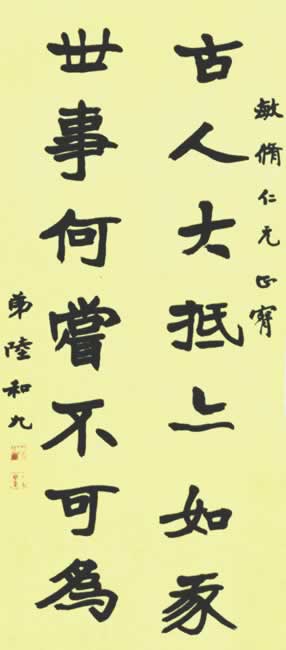 敏脩仁兄正
古人大抵亦如我
世事何嘗不可為
弟陸和九